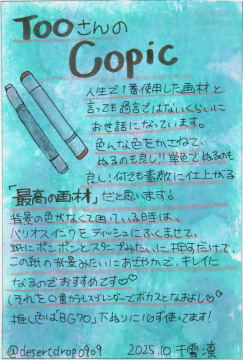 Tooさんの
Copic
人生で1番使用した画材と
言っても過言ではないくらいに
お世話になっています。
色んな色をかさねて、
ぬるのも良し!!単色でぬるのも
良し!何でも素敵に仕上がる
「最高の画材」だと思います!
背景の色がなくて困っている時は、
バリオスインクをティッシュにふくませて、
紙にポンポンとスタンプみたいに押すだけで
この紙の背景みたいにあざやかで、キレイに
なるのでおすすめです♡♡
(それを0番カラーレスブレンダーでボカスとなおよし♡)
推し色は「BG70」下ぬりに必ず使ってます!
@desertdrop0909 2025.10 千雪・凛